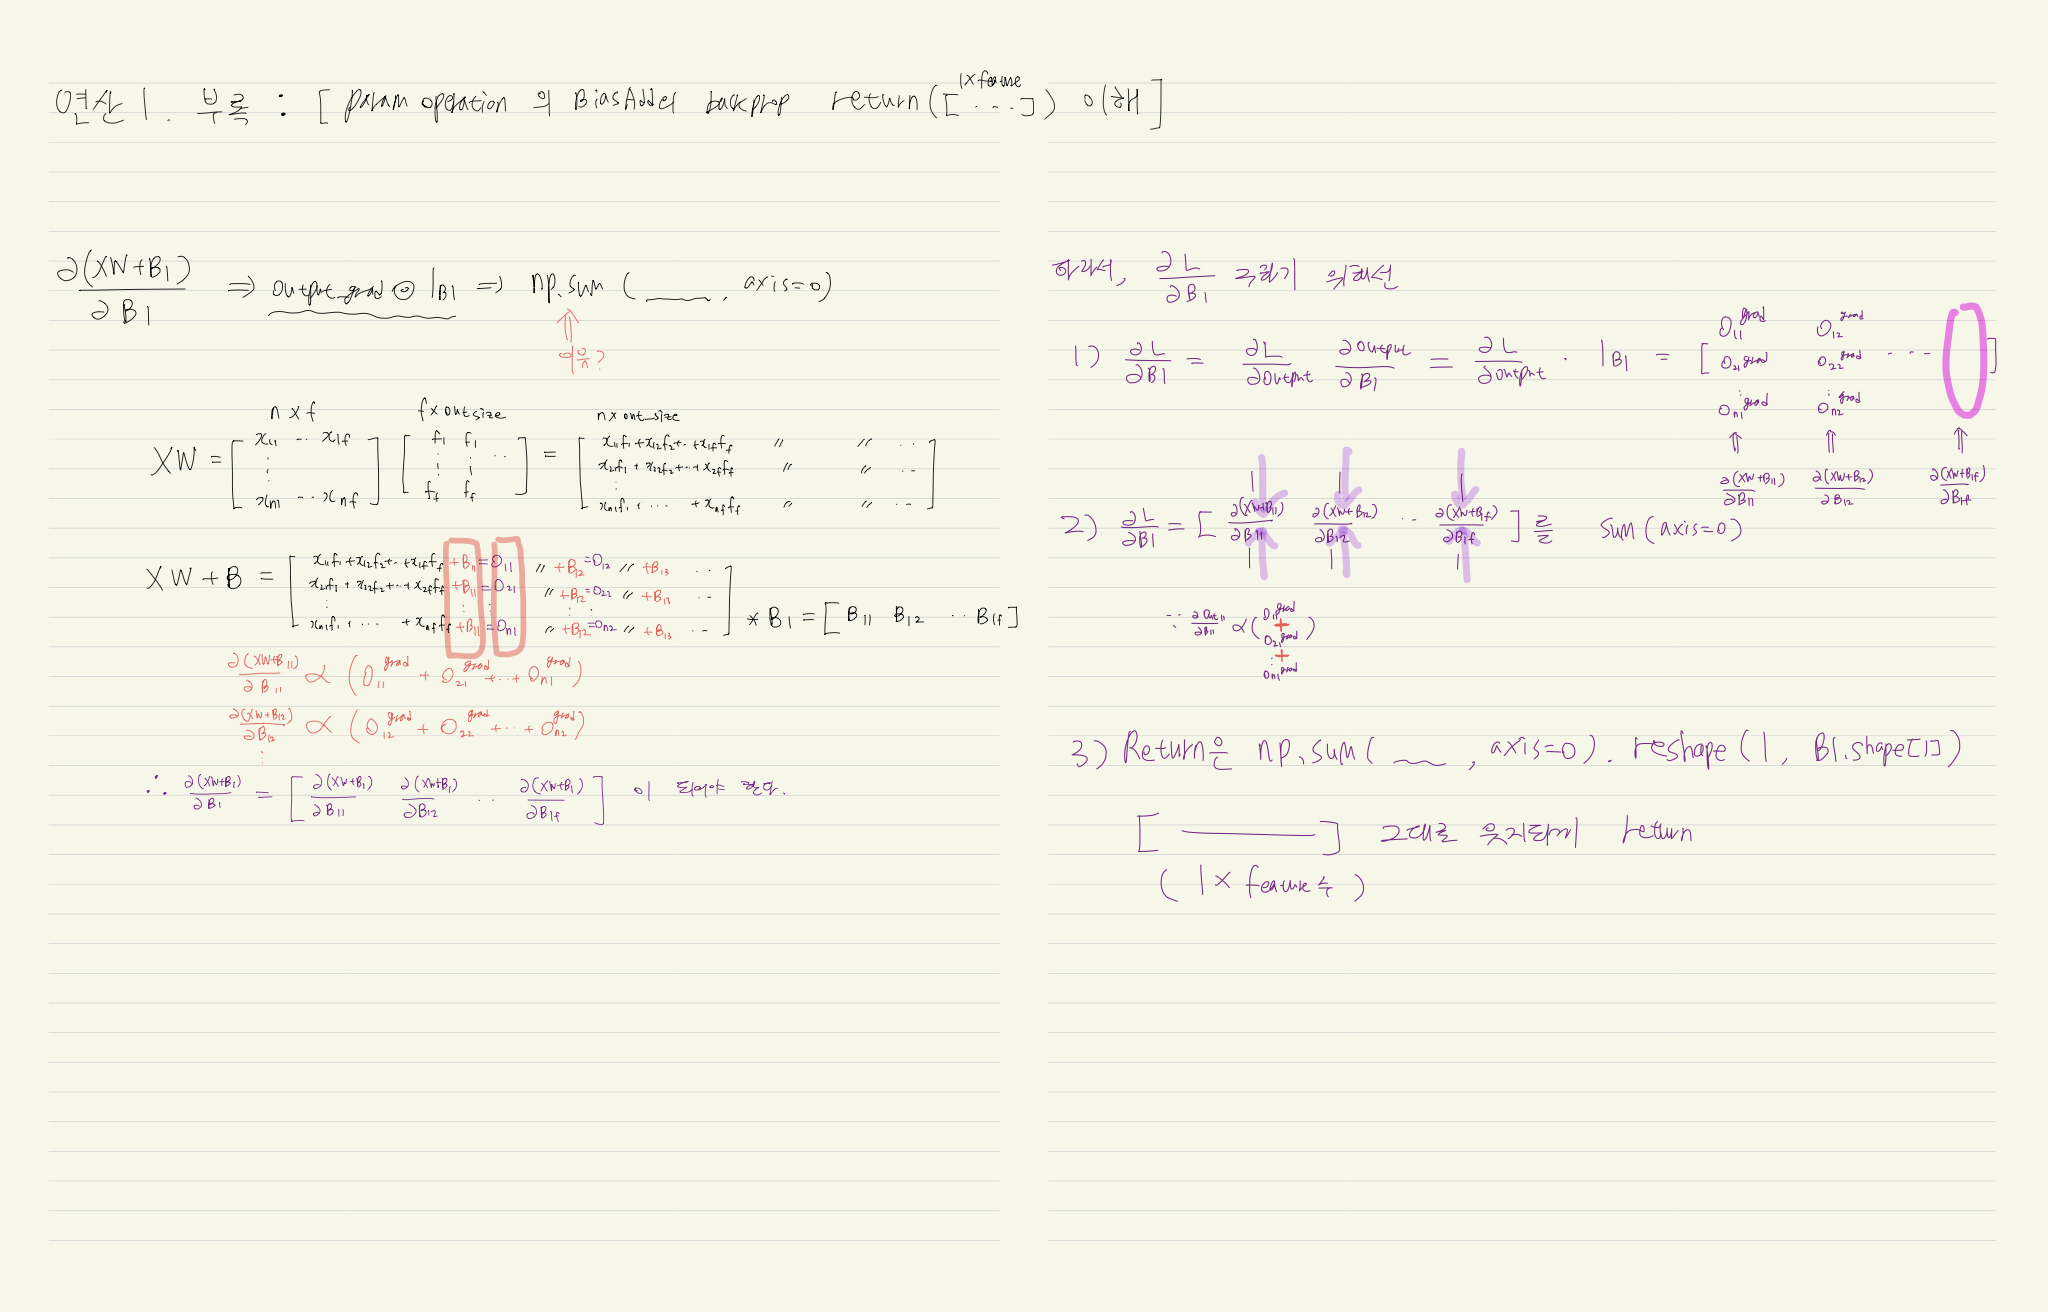 연산 1. 부록 : [ param operation 의 BiasAdd의 backprop return([ ... ]) 이해 ]
1×feature
∂(XW+B1)/∂B1 ⇒ output_grad ⊙ 1B1 ⇒ np.sum ( ___ , axis=0)
⇑
이유?
n×f f×out_size n×out_size
XW = [ x11 ·· x1f ⋮ xn1 ·· xnf ] [ f1 f1 ⋮ ⋮ ·· ff ff ] = [ x11f1+x12f2+··+x1fff 〃 〃 ··
x21f1+x22f2+··+x2fff 〃 〃 ··
⋮
xn1f1+ ··· +xnfff 〃 〃 ·· ]
XW+B = [ x11f1+x12f2+··+x1fff +B11 =O11 〃 +B12 =O12 〃 +B13 ··
x21f1+x22f2+··+x2fff +B11 =O21 〃 +B12 =O22 〃 +B13 ··
⋮ ⋮ ⋮ ⋮ ⋮
xn1f1+ ··· +xnfff +B11 =On1 〃 +B12 =On2 〃 +B13 ·· ] * B1 = [ B11 B12 ·· B1f ]
∂(XW+B11)/∂B11 ∝ (O11^grad + O21^grad +··+ On1^grad)
∂(XW+B12)/∂B12 ∝ (O12^grad + O22^grad +··+ On2^grad)
⋮
∴ ∂(XW+B1)/∂B1 = [ ∂(XW+B1)/∂B11 ∂(XW+B1)/∂B12 ·· ∂(XW+B1)/∂B1f ] 이 되어야 한다.
따라서, ∂L/∂B1 구하기 위해선
1) ∂L/∂B1 = ∂L/∂output ∂output/∂B1 = ∂L/∂output · 1B1 = [ O11^grad O12^grad
O21^grad O22^grad ··· ]
⋮ ⋮
On1^grad On2^grad
⇑ ⇑ ⇑
∂(XW+B11)/∂B11 ∂(XW+B12)/∂B12 ∂(XW+B1f)/∂B1f
2) ∂L/∂B1 = [ ∂(XW+B11)/∂B11 ∂(XW+B12)/∂B12 ·· ∂(XW+B1f)/∂B1f ] 를 sum(axis=0)
∵ ∂Out11/∂B11 ∝ ( O11^grad
+
O21^grad )
⋮ +
On1^grad
3) Return은 np.sum( ___ , axis=0). reshape(1, B1.shape[1])
[ ——— ] 그대로 유지되게 return
( 1×feature 수 )